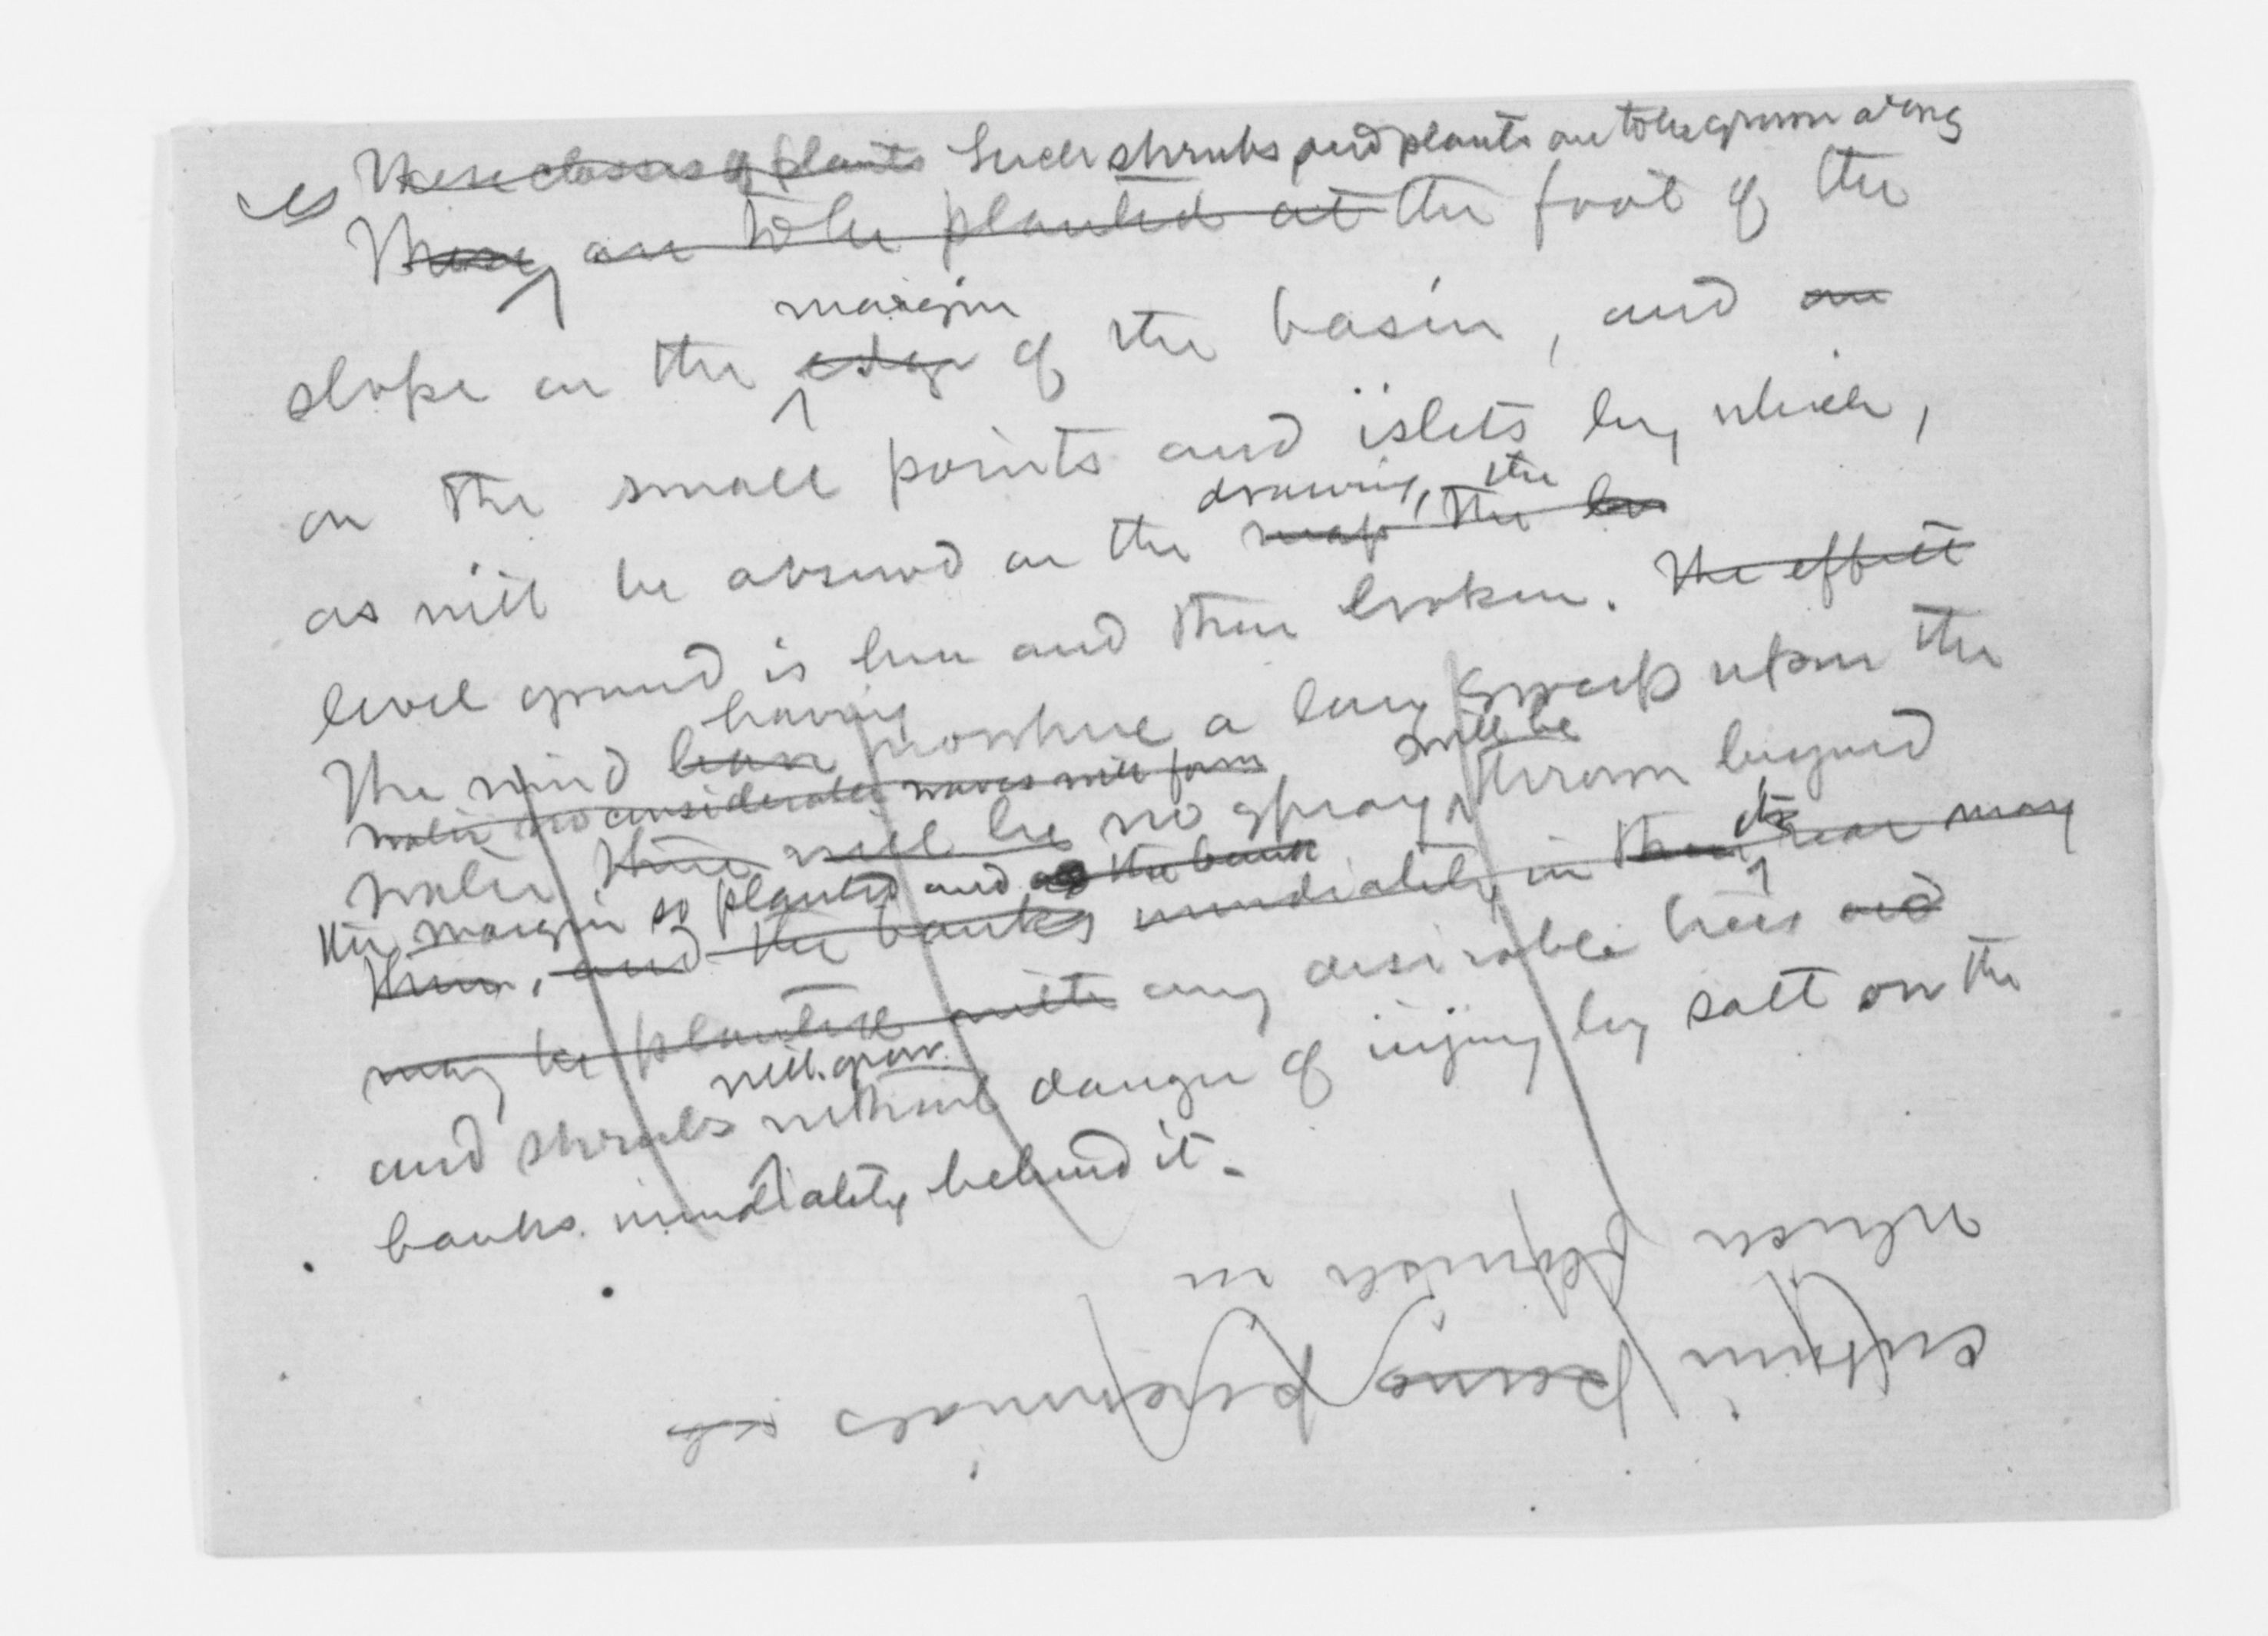 These classes of plants Such shrubs and plants are to be grown along
These are to be planted at the foot of the
margin
slope on the edge of the basin, and on
on the small points and islets by which,
drawing, the
as will be observed on the map, the le
level ground is here and there broken. The effect
having
The wind have nowhere a long sweep upon the
water no considerable waves will form will be
water there will be no spray thrown beyond
the margin so planted and as the bank its
them, and the banks immediately in their rear may
may be planted with any desirable trees and
will grow
and shrubs without danger of injury by salt on the
banks immediately behind it.
certain perennials
which flourish in